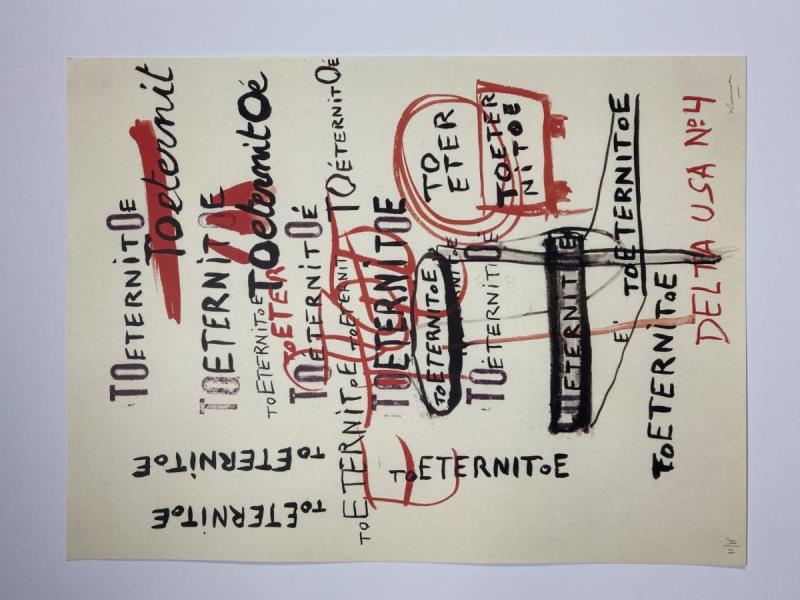 TOETERNITOE
TOeternit
TOETERNITOE
TOeternitOé
TOETERNITOE
TOETER
TOÉTERNITOÉ
TOÉTERNITOÉ
TOETERNIT
TOETERNITOE
TO
ETER
TOETER
NITOE
TOETERNITOE
TOÉTERNITOÉ
ETERNIT
E'
TOETERNITOE
TOETERNITOE
DELTA USA Nº4
TOETERNITOE
TOETERNITOE
TOETERNITOE
TOETERNITOE